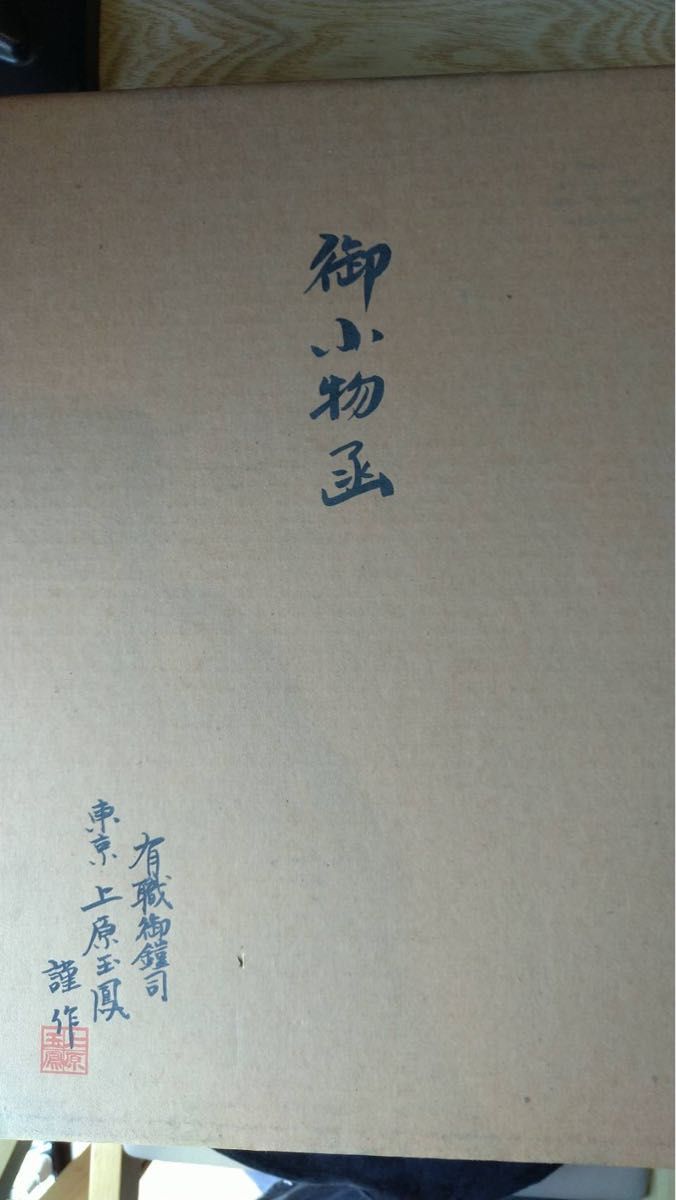 御小物函
有職御鎧司
東京 上原玉鳳
謹作
上原
玉鳳